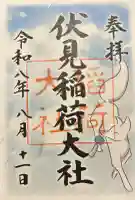 奉拝
伏見稲荷大社
令和八年八月十一日